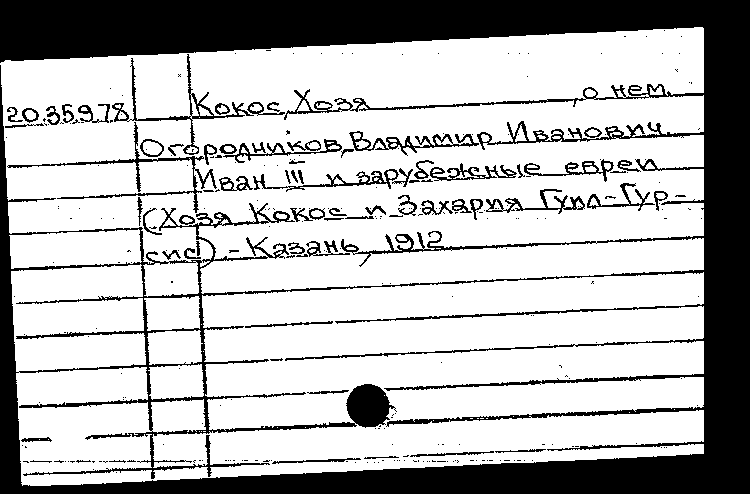 20.35978 Кокос, Хозя , о нем.
Огородников, Владимир Иванович.
Иван III и зарубежные евреи
(Хозя Кокос и Захария Гуил-Гур-
сис). - Казань, 1912